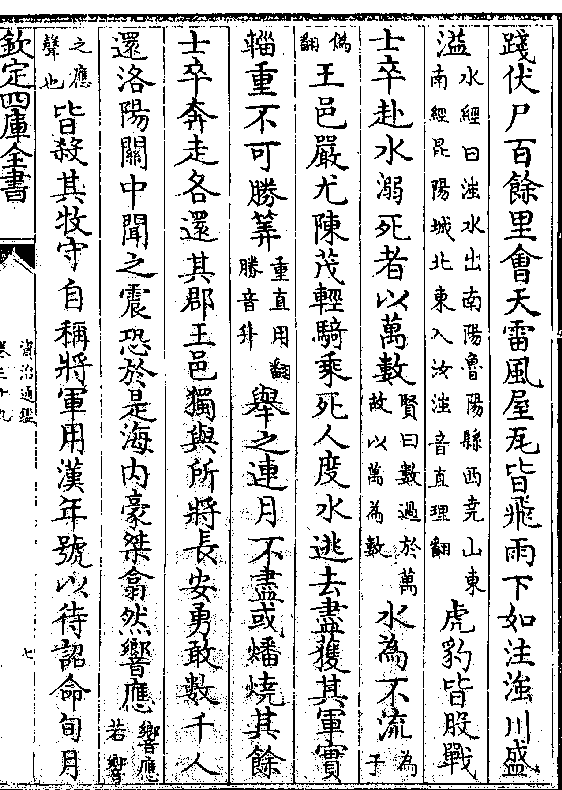 踐伏尸百餘里會天雷風屋瓦皆飛雨下如注滍川盛
溢水經曰滍水出南陽魯陽縣西堯山東南經昆陽城北東入汝滍音直理翻虎豹皆股戰
士卒赴水溺死者以萬數賢曰數過於萬故以萬為數水為不流為于
偽翻王邑嚴尤陳茂輕騎乘死人度水逃去盡獲其軍實
輜重不可勝筭重直用翻勝音升舉之連月不盡或燔燒其餘
士卒奔走各還其郡王邑獨與所將長安勇敢數千人
還洛陽關中聞之震恐於是海内豪桀翕然響應響應若響
之應聲也皆殺其牧守自稱將軍用漢年號以待詔命旬月
欽定四庫全書
資治通鑑
卷三十九
七